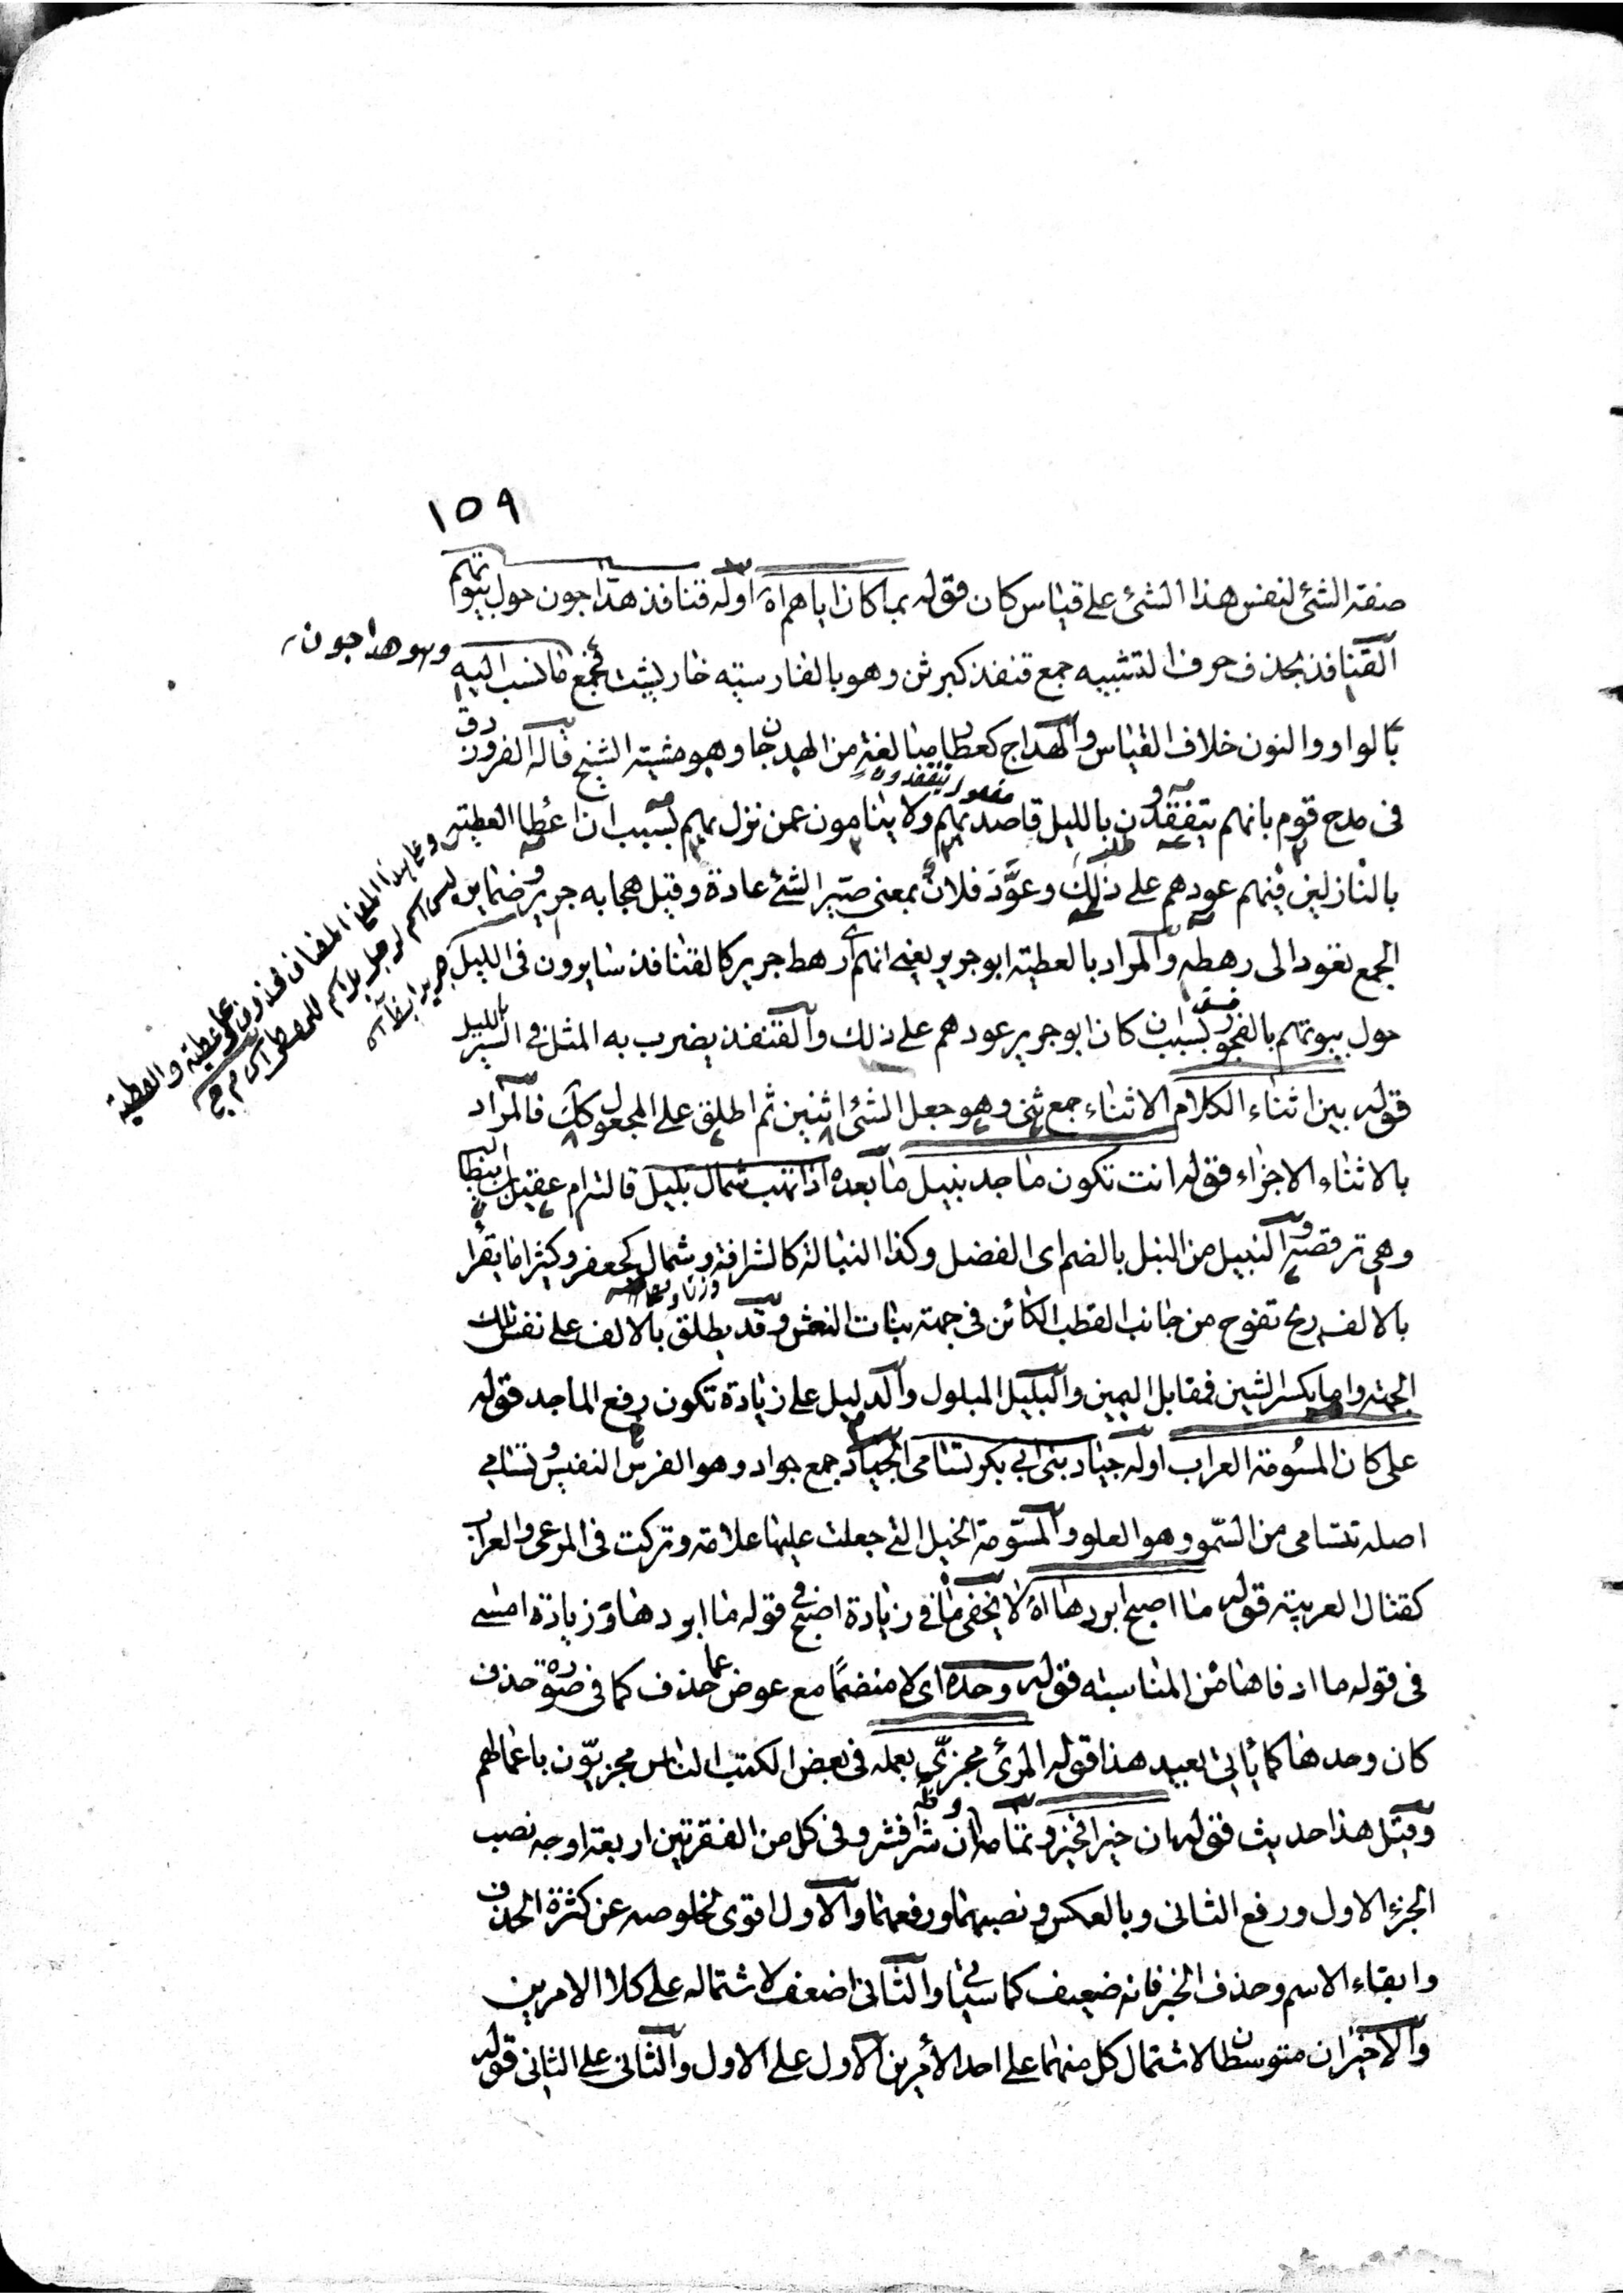 ١٥٩
صفة الشئ لنفس هذا الشئ على قياس كان قوله بما كان اياهم اه اوله قنافذ هداجون حول بيوتهم
القنافذ بحذف حرف التشبيه جمع قنفذ كبرثن وهو بالفارسية خارپشت فجمع ما نسب اليه
وهو هداجون
بالواو والنون خلاف القياس والهداج كعطا مبالغة من الهدجان وهو مشية الشيخ قاله الفرزدق
فى مدح قوم بانهم يتفقدون بالليل قاصديهم ولا ينامون عمن نزل بهم بسبب ان اعطا العطية
مفعول يتفقدون
بالنازلين فيهم عودهم على ذلك وعوَّد فلان بمعنى صير الشئ عادة وقيل هجا به جرير وضماير
الجمع تعود الى رهطه والمراد بالعطية ابو جرير يعنى انهم اى رهط جرير كالقنافذ سايرون فى الليل
حول بيوتهم بالفجور بسبب ان كان ابو جرير عودهم على ذلك والقنفذ يضرب به المثل فى السير بالليل
قوله بين اثناء الكلام الاثناء جمع ثنى وهو جعل الشئ اثنين ثم اطلق على المجعول كك فالمراد
بالاثناء الاجزاء قوله انت تكون ماجد نبيل ما بعده اذا تهب شمال بليل قالته ام عقيل بن ابيطالب
وهى ترقصه والنبيل من النبل بالضم اى الفضل وكذا النبالة كالشرافة وشمال كجعفر وكثيرا ما يقرا
بالالف ريح تفوح من جانب القطب الكائن فى جهة بنات النعش وقد يطلق بالالف على نفس تلك
الجهة واما بكسر الشين فمقابل اليمين والبليل المبلول والدليل على زيادة تكون رفع الماجد قوله
على كان المسومة العراب اوله جياد بنى ابى بكر تسامى الجياد جمع جواد وهو الفرس النفيس وتسامى
اصله تتسامى من السمو وهو العلو والمسومة الخيل التى جعلت عليها علامة وتركت فى المرعى والعراب
كقتال العربية قوله ما اصبح ابردها اه لا يخفى ما فى زيادة اصبح فى قوله ما ابردها وزيادة امسى
فى قوله ما ادفاها من المناسبه قوله وحده اى لا منضما مع عوض عما حذف كما فى صورة حذف
كان وحدها كما يأتى بعيد هذا قوله المرئ مجزىّ بعمله فى بعض الكتب الناس مجزيّون باعمالهم
وقيل هذا حديث قوله ان خيرا فخير وتمامه وان شرا فشر وفى كل من الفقرتين اربعة اوجه نصب
الجزء الاول ورفع الثانى وبالعكس ونصبهما ورفعهما والاول اقوى لخلوصه عن كثرة الحذف
وابقاء الاسم وحذف الخبر فانه ضعيف كما سيأتى والثانى اضعف لاشتماله على كلا الامرين
والاخيران متوسطان لاشتمال كل منهما على احد الأمرين الاول على الاول والثانى على الثانى قوله